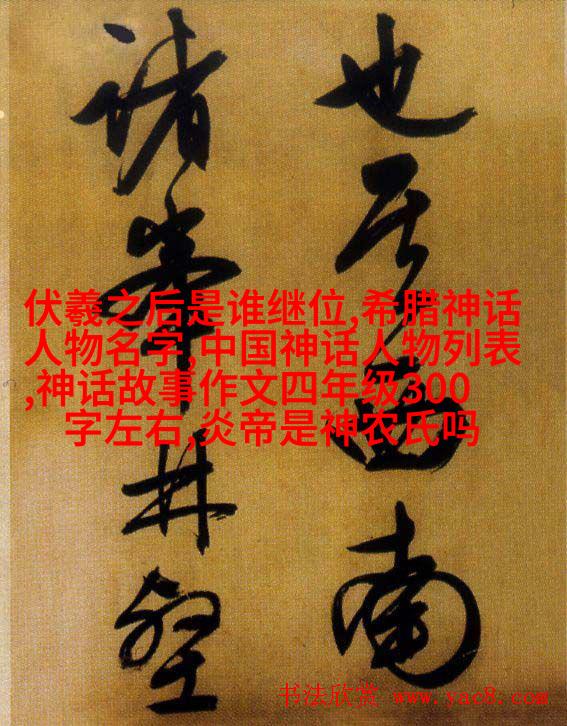 也其西南
諸峯林壑
伏羲之后是谁继位,希腊神话
人物名字,中国神话人物列表
,神话故事作文四年级300
字左右,炎帝是神农氏吗
书法欣赏 www.yac8.com